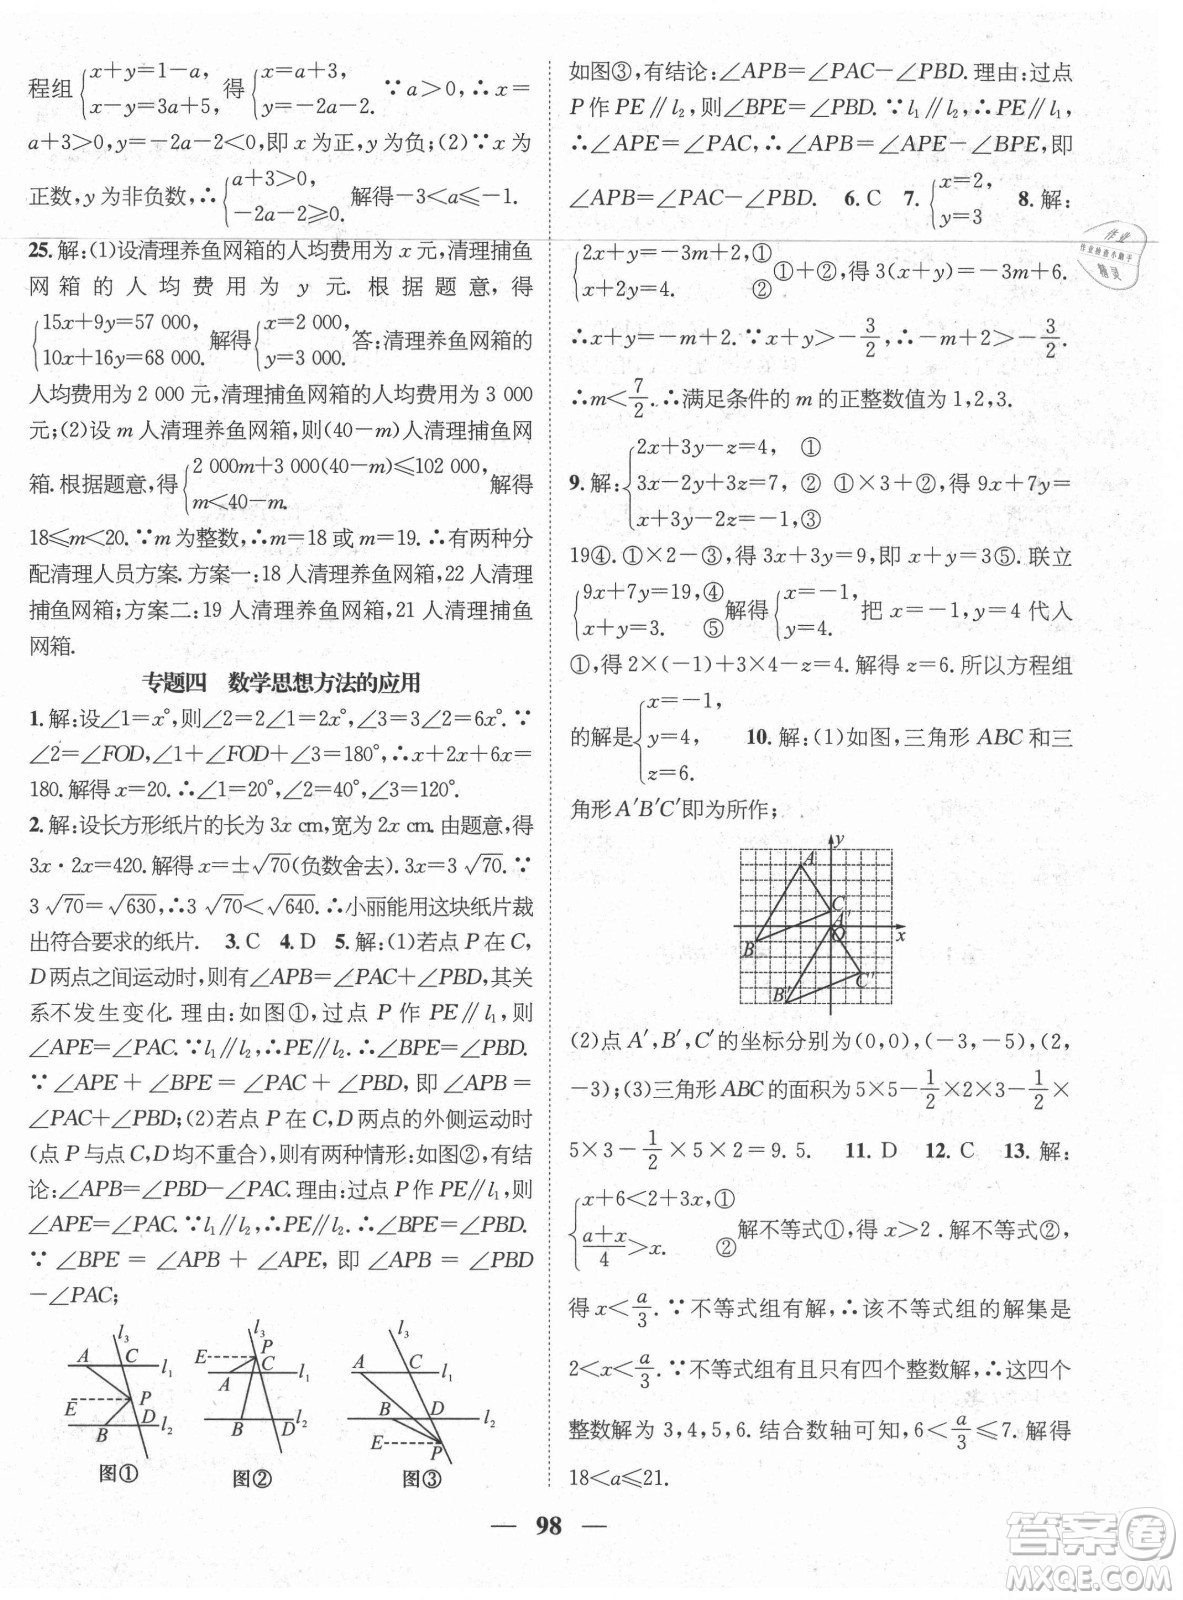 程组{x+y=1-a, x-y=3a+5, 得{x=a+3, y=-2a-2. ∵a>0,∴x=
a+3>0,y=-2a-2<0,即x为正,y为负;(2)∵x为
正数,y为非负数,∴{a+3>0, -2a-2≥0. 解得-3<a≤-1.
25. 解:(1)设清理养鱼网箱的人均费用为x元,清理捕鱼
网箱的人均费用为y元. 根据题意,得
{15x+9y=57 000, 10x+16y=68 000. 解得{x=2 000, y=3 000. 答:清理养鱼网箱的
人均费用为2 000元,清理捕鱼网箱的人均费用为3 000
元;(2)设m人清理养鱼网箱,则(40-m)人清理捕鱼网
箱. 根据题意,得{2 000m+3 000(40-m)≤102 000, m<40-m. 解得
18≤m<20. ∵m为整数,∴m=18或m=19. ∴有两种分
配清理人员方案. 方案一:18人清理养鱼网箱,22人清理
捕鱼网箱;方案二:19人清理养鱼网箱,21人清理捕鱼
网箱.
专题四 数学思想方法的应用
1. 解:设∠1=x°,则∠2=2∠1=2x°,∠3=3∠2=6x°. ∵
∠2=∠FOD,∠1+∠FOD+∠3=180°,∴x+2x+6x=
180. 解得x=20. ∴∠1=20°,∠2=40°,∠3=120°.
2. 解:设长方形纸片的长为3x cm,宽为2x cm. 由题意,得
3x·2x=420. 解得x=±√70(负数舍去). 3x=3√70. ∵
3√70=√630,∴3√70<√640. ∴小丽能用这块纸片裁
出符合要求的纸片. 3. C 4. D 5. 解:(1)若点P在C,
D两点之间运动时,则有∠APB=∠PAC+∠PBD,其关
系不发生变化. 理由:如图①,过点P作PE∥l₁,则
∠APE=∠PAC. ∵l₁∥l₂,∴PE∥l₂. ∴∠BPE=∠PBD.
∵∠APE+∠BPE=∠PAC+∠PBD,即∠APB=
∠PAC+∠PBD;(2)若点P在C,D两点的外侧运动时
(点P与点C,D均不重合),则有两种情形:如图②,有结
论:∠APB=∠PBD-∠PAC. 理由:过点P作PE∥l₁,则
∠APE=∠PAC. ∵l₁∥l₂,∴PE∥l₂. ∴∠BPE=∠PBD.
∵∠BPE=∠APB+∠APE,即∠APB=∠PBD
-∠PAC;
l₃ A C l₁ E P B D l₂
图①
l₃ E P C l₁ A B D l₂
图②
l₃ A C l₁ B D l₂ E P
图③
如图③,有结论:∠APB=∠PAC-∠PBD. 理由:过点
P作PE∥l₂,则∠BPE=∠PBD. ∵l₁∥l₂,∴PE∥l₁.
∴∠APE=∠PAC. ∴∠APB=∠APE-∠BPE,即
∠APB=∠PAC-∠PBD. 6. C 7. {x=2, y=3 8. 解:
{2x+y=-3m+2,① x+2y=4. ② ①+②,得3(x+y)=-3m+6.
∴x+y=-m+2. ∵x+y>-3/2,∴-m+2>-3/2.
∴m<7/2. ∴满足条件的m的正整数值为1,2,3.
9. 解:{2x+3y-z=4, ① 3x-2y+3z=7, ② x+3y-2z=-1,③ ①×3+②,得9x+7y=
19④. ①×2-③,得3x+3y=9,即x+y=3⑤. 联立
{9x+7y=19,④ x+y=3. ⑤ 解得{x=-1, y=4. 把x=-1,y=4代入
①,得2×(-1)+3×4-z=4. 解得z=6. 所以方程组
的解是{x=-1, y=4, z=6. 10. 解:(1)如图,三角形ABC和三
角形A′B′C′即为所作;
y A C A′ O x B C′ B′
(2)点A′,B′,C′的坐标分别为(0,0),(-3,-5),(2,
-3);(3)三角形ABC的面积为5×5-1/2×2×3-1/2×
5×3-1/2×5×2=9.5. 11. D 12. C 13. 解:
{x+6<2+3x,① (a+x)/4>x. ② 解不等式①,得x>2. 解不等式②,
得x<a/3. ∵不等式组有解,∴该不等式组的解集是
2<x<a/3. ∵不等式组有且只有四个整数解,∴这四个
整数解为3,4,5,6. 结合数轴可知,6<a/3≤7. 解得
18<a≤21.
— 98 —
作业
作业检查小助手
精灵
答案卷
MXQE.COM